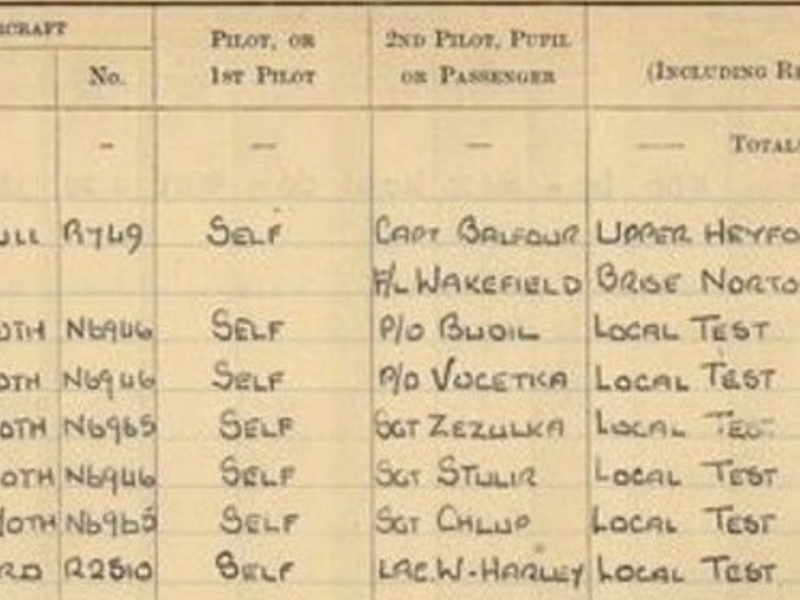 RCRAFT PILOT, OR 2ND PILOT, PUPIL
No. 1ST PILOT OR PASSENGER (INCLUDING RE
- — — —— TOTALS
ULL R749 SELF CAPT BALFOUR UPPER HEYFO
F/L WAKEFIELD BRISE NORTO
OTH N6946 SELF P/O BUDIL LOCAL TEST
OTH N6946 SELF P/O VOCETKA LOCAL TEST
OTH N6965 SELF SGT ZEZULKA LOCAL TEST
OTH N6946 SELF SGT STULIR LOCAL TEST
OTH N6965 SELF SGT CHLUP LOCAL TEST
RD R2510 SELF LAC. W-HARLEY LOCAL TEST